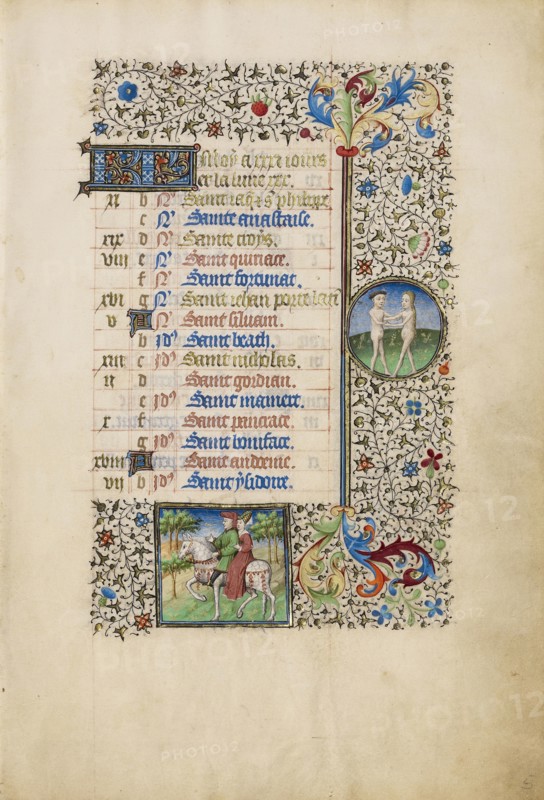 KL May a xxxi iours
et la lune xxx.
xi b Nᵃ Saint iaq̄s s' phelippe
c Nᵃ Sainte anastaise.
xix d Nᵃ Sainte
viii e Nᵃ Saint quiriace.
f Nᵃ Saint fortunat.
xvi g Nᵃ Saint iehan
v A Nᵃ Saint siluain.
b Idᵘˢ Saint beath.
xiii c Idᵘˢ Saint nicholas.
ii d Idᵘˢ Saint gordian.
e Idᵘˢ Saint mamert.
x f Idᵘˢ Saint pancrace.
g Idᵘˢ Saint boniface.
xviii A Idᵘˢ Sainte
vii b Idᵘˢ Saint ysidoire.
PHOTO12